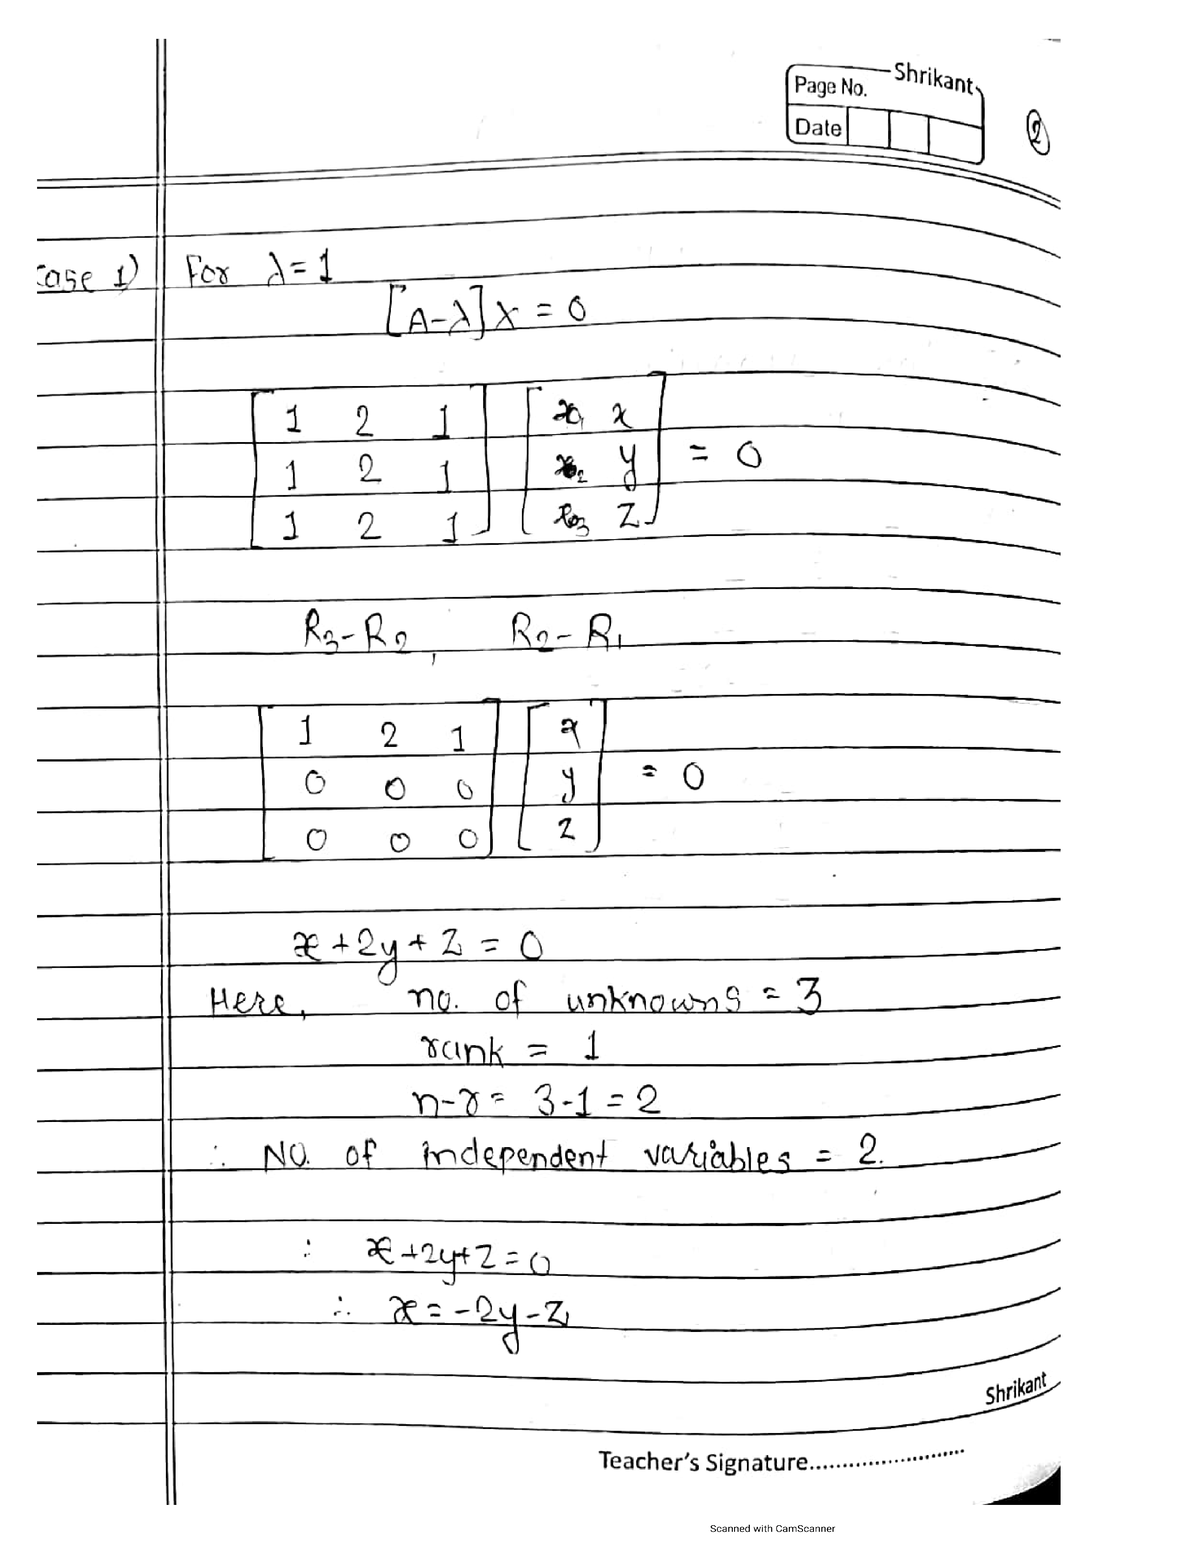 Shrikant
Page No.
Date
②
Case 1) For λ=1
[A-λ]X = 0
1 2 1 x
1 2 1 y = 0
1 2 1 z
R3-R2, R2-R1
1 2 1 x
0 0 0 y = 0
0 0 0 z
x+2y+z = 0
Here, no. of unknowns = 3
rank = 1
n-r = 3-1 = 2
∴ NO. of independent variables = 2.
∴ x+2y+z=0
∴ x=-2y-z
Shrikant
Teacher's Signature........................
Scanned with CamScanner